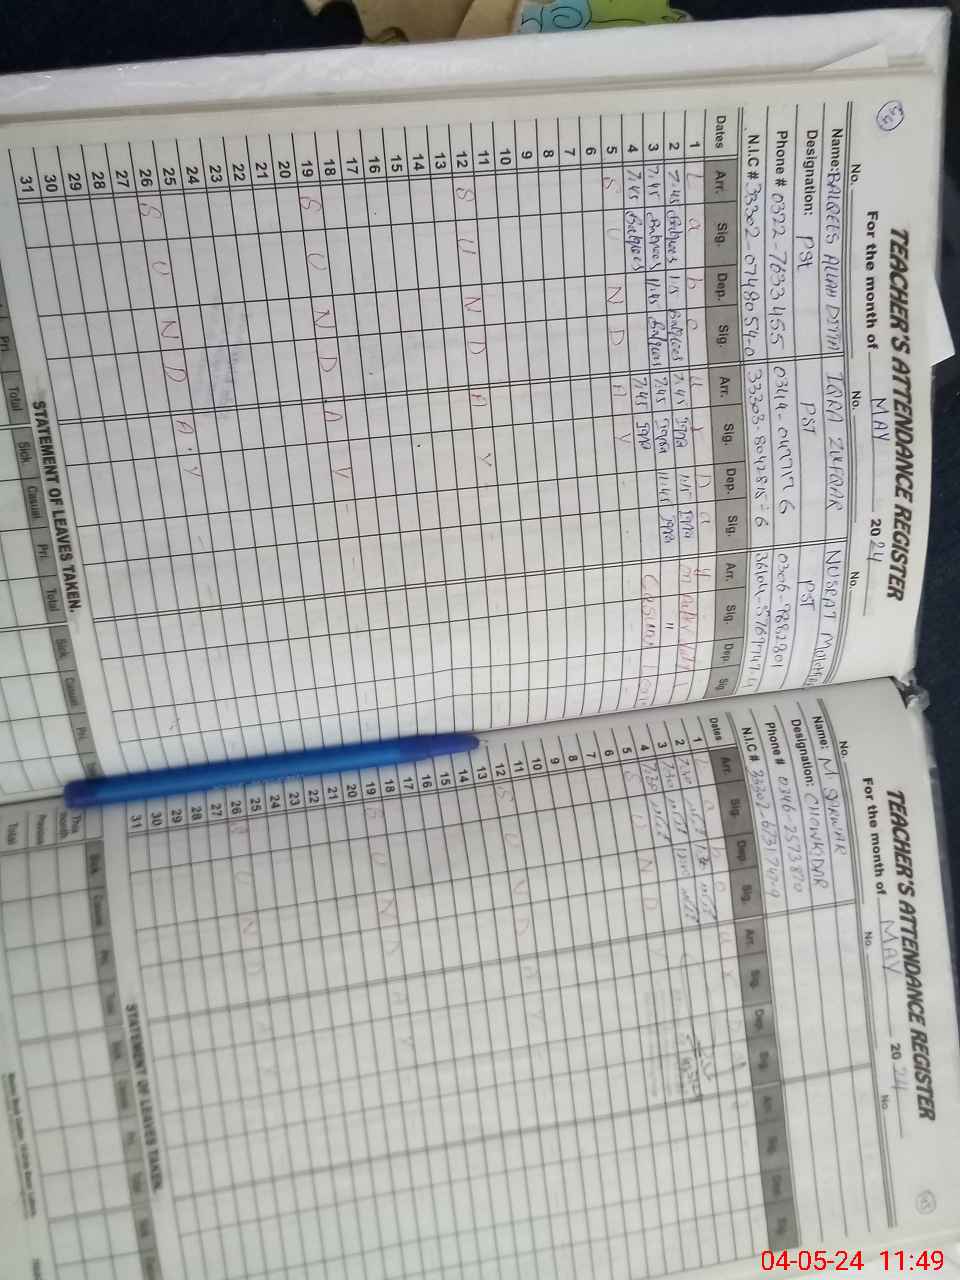 TEACHER'S ATTENDANCE REGISTER
For the month of MAY 2024
No. No. No.
Name: BALQEES ALLAH DITTA IQRA ZULFQAR NUSRAT
Designation: PST PST PST
Phone # 0322-7633455 0344-0477176 0306-7882801
N.I.C # 33302-0748054-0 33303-8042815-6
Dates Arr. Sig. Dep. Sig. Arr. Sig. Dep. Sig. Arr. Sig. Dep. Sig.
1 Labour Day
2 7.45 Balqees 1.15 Balqees 7.45 Iqra 1.15 Iqra
3 7.45 Balqees 11.45 Balqees 7.45 Iqra 11.45 Iqra "
4 7.45 Balqees 7.45 Iqra Casual
5 SUNDAY
6
7
8
9
10
11
12 SUNDAY
13
14
15
16
17
18
19 SUNDAY
20
21
22
23
24
25
26 SUNDAY
27
28
29
30
31
STATEMENT OF LEAVES TAKEN.
Pri. Total Sick Casual Pri. Total Sick Casual Pri.
TEACHER'S ATTENDANCE REGISTER
For the month of MAY 2024
No. No. No.
Name: M. SARWAR
Designation: CHOWKIDAR
Phone # 0346-2573870
N.I.C # 33302-6731747-9
Dates Arr. Sig. Dep. Sig. Arr. Sig. Dep. Sig. Arr. Sig. Dep. Sig.
1 Labour Day
2 7.30
3 7.30
4 7.30
5 SUNDAY
6
7
8
9
10
11
12 SUNDAY
13
14
15
16
17
18
19 SUNDAY
20
21
22
23
24
25
26 SUNDAY
27
28
29
30
31
STATEMENT OF LEAVES TAKEN.
This month
Previous
Total
04-05-24 11:49